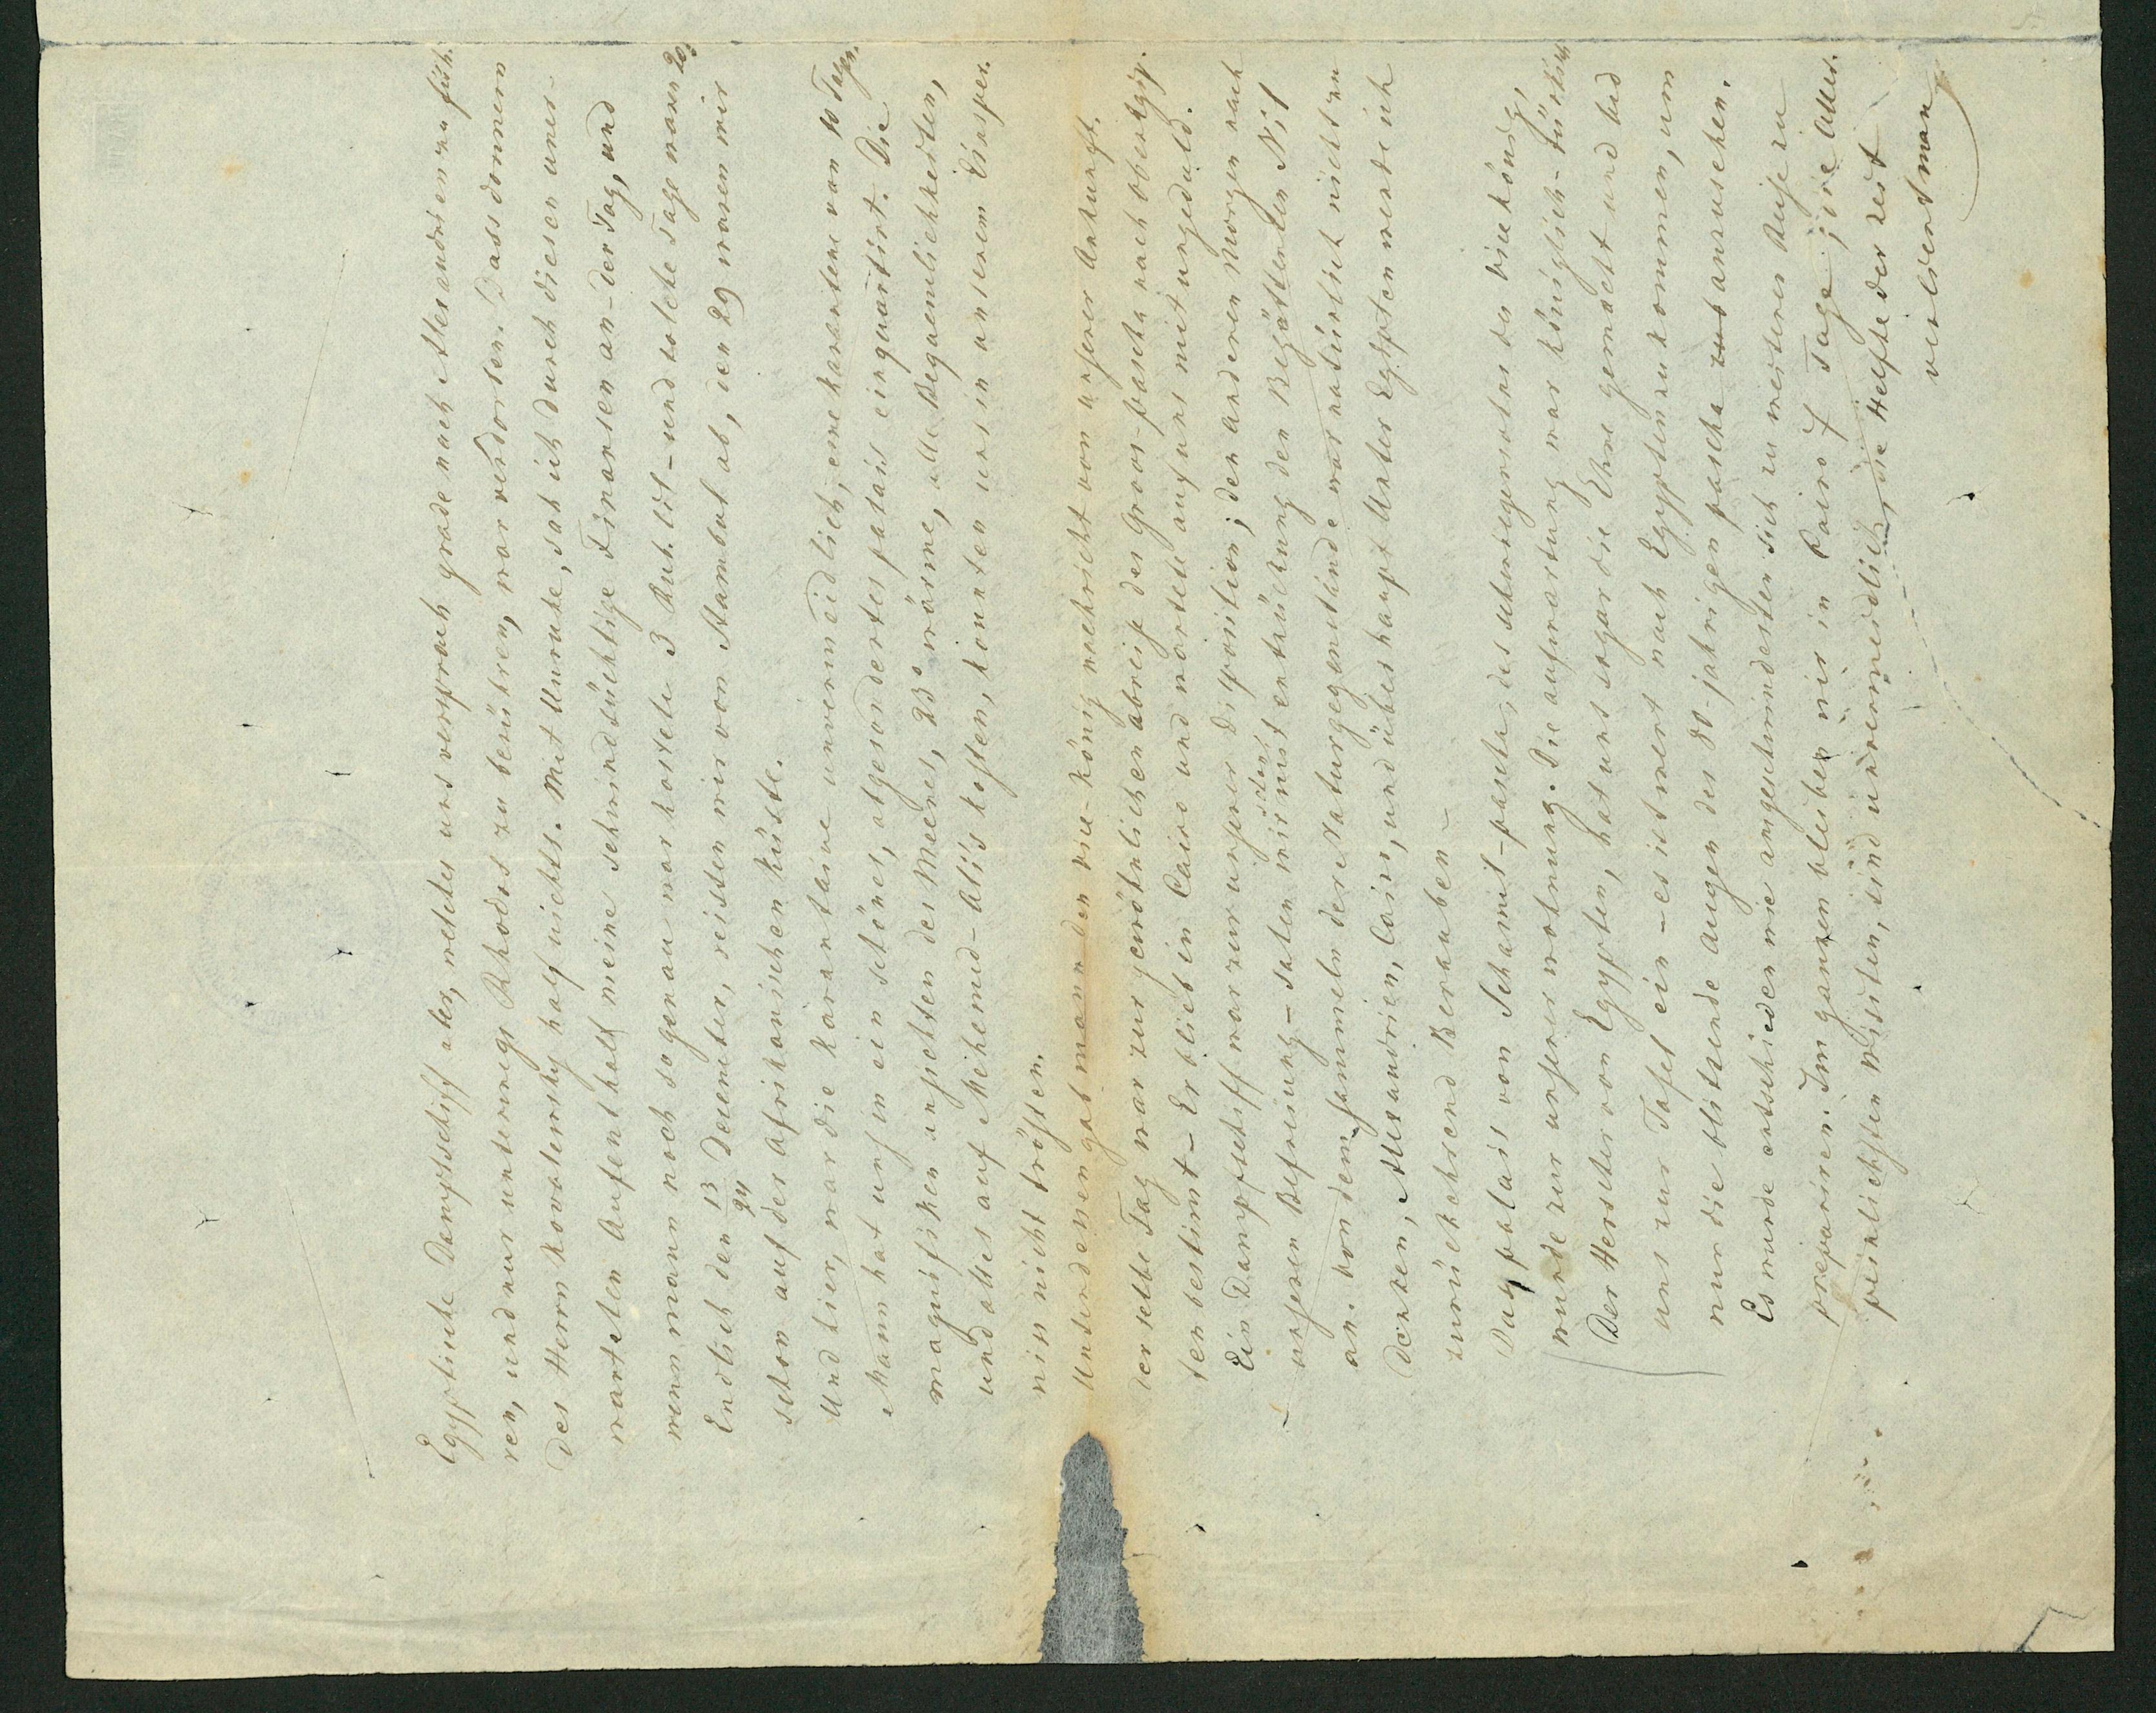 Egyptische Dampfschiff aber, welches uns versprach grade nach Alexandrien zu füh-
ren, und nur unterwegs Rhodus zu berühren, war verdorben. Dass donnern
des Herrn Kovalewsky half nichts. Mit Unruhe, sah ich durch diesen uner-
warteten Aufenthalt meine schwindsüchtige Finansen an - der Tag, und
wenn mann noch so genau war kostete 3 Rub. Slb. - und solche Tage waren 20.
Endlich den 13/24 December, reisten wir von Stambul ab, den 29 waren wir
schon auf der Afrikanischen Küste.
Und hier, war die Karantaine unvermeidlich, eine Karantene von 10 Tagen.
Mann hat uns in ein schönes, abgesondertes palais einquartirt. Die
magnifiken ansichten des Meeres, 23° wärme, alle Bequemlichkeiten,
und alles auf Mehemed-Ali's kosten, konnten uns in unserem Einsper-
niss nicht trösten.
Unterdessen gab mann dem Vice-König nachricht von unserer Ankunft.
derselbe Tag war zur gewöhnlichen abreise des Groos-pascha nach Oberegip-
ten bestimt - Er blieb in Cairo und wartete auf uns mit ungeduld.
Ein Dampfschiff war zur unserer disposition; den anderen Morgen nach
unseren Befreiung - sahen wir schon mit entzückung den Begötterten Nil
an. von dem sammeln der Naturgegenstände war natürlich nicht zu
denken, Alexandrien, Cairo, und überhaupt Unter Egypten werde ich
zurückkehrend Berauben -
Das palais von Schamil-pascha, des schwiegersohns des vice königs,
wurde zur unserer wohnung. Die aufwartung war königlich-türkisch
Der Herscher von Egypten, hat uns sogar die Ehre gemacht und lud
uns zur Tafel ein - es ist wert nach Egypten zu kommen, um
nur die blitzende augen des 80-jahrigen pascha anzusehen.
Es wurde entschieden wie amgeschwindesten sich zu weiterer Reise zu
prepariren. Im ganzen bleiben wir in Cairo 7 Tage; die Aller-
peinlichsten visiten, sind unvermeidlich, die Helfte der zeit
verliert man